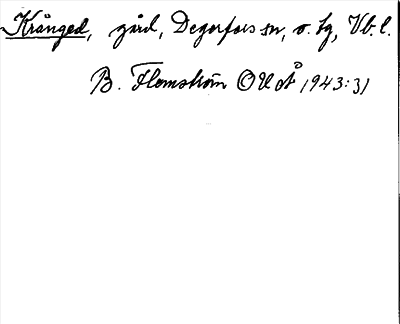 Krånged, gård, Degerfors sn, o. lg, Vb. l.
B. Flemström OUoÅ 1943:31